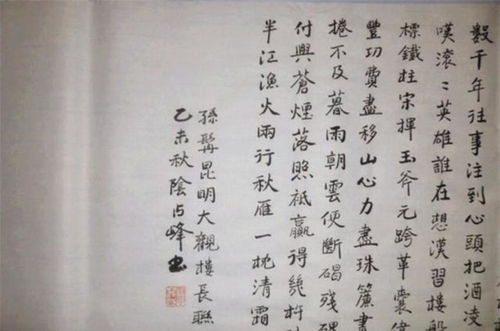 數千年往事注到心頭把酒凌
嘆滾〻英雄誰在想漢習樓船
標鐵柱宋揮玉斧元跨革囊偉
豐功費盡移山心力盡珠簾畫
捲不及暮雨朝雲便斷碣殘碑
付與蒼煙落照祗贏得幾杵
半江漁火兩行秋雁一枕清霜
孫髯昆明大觀樓長聯
乙未秋陰占峰書